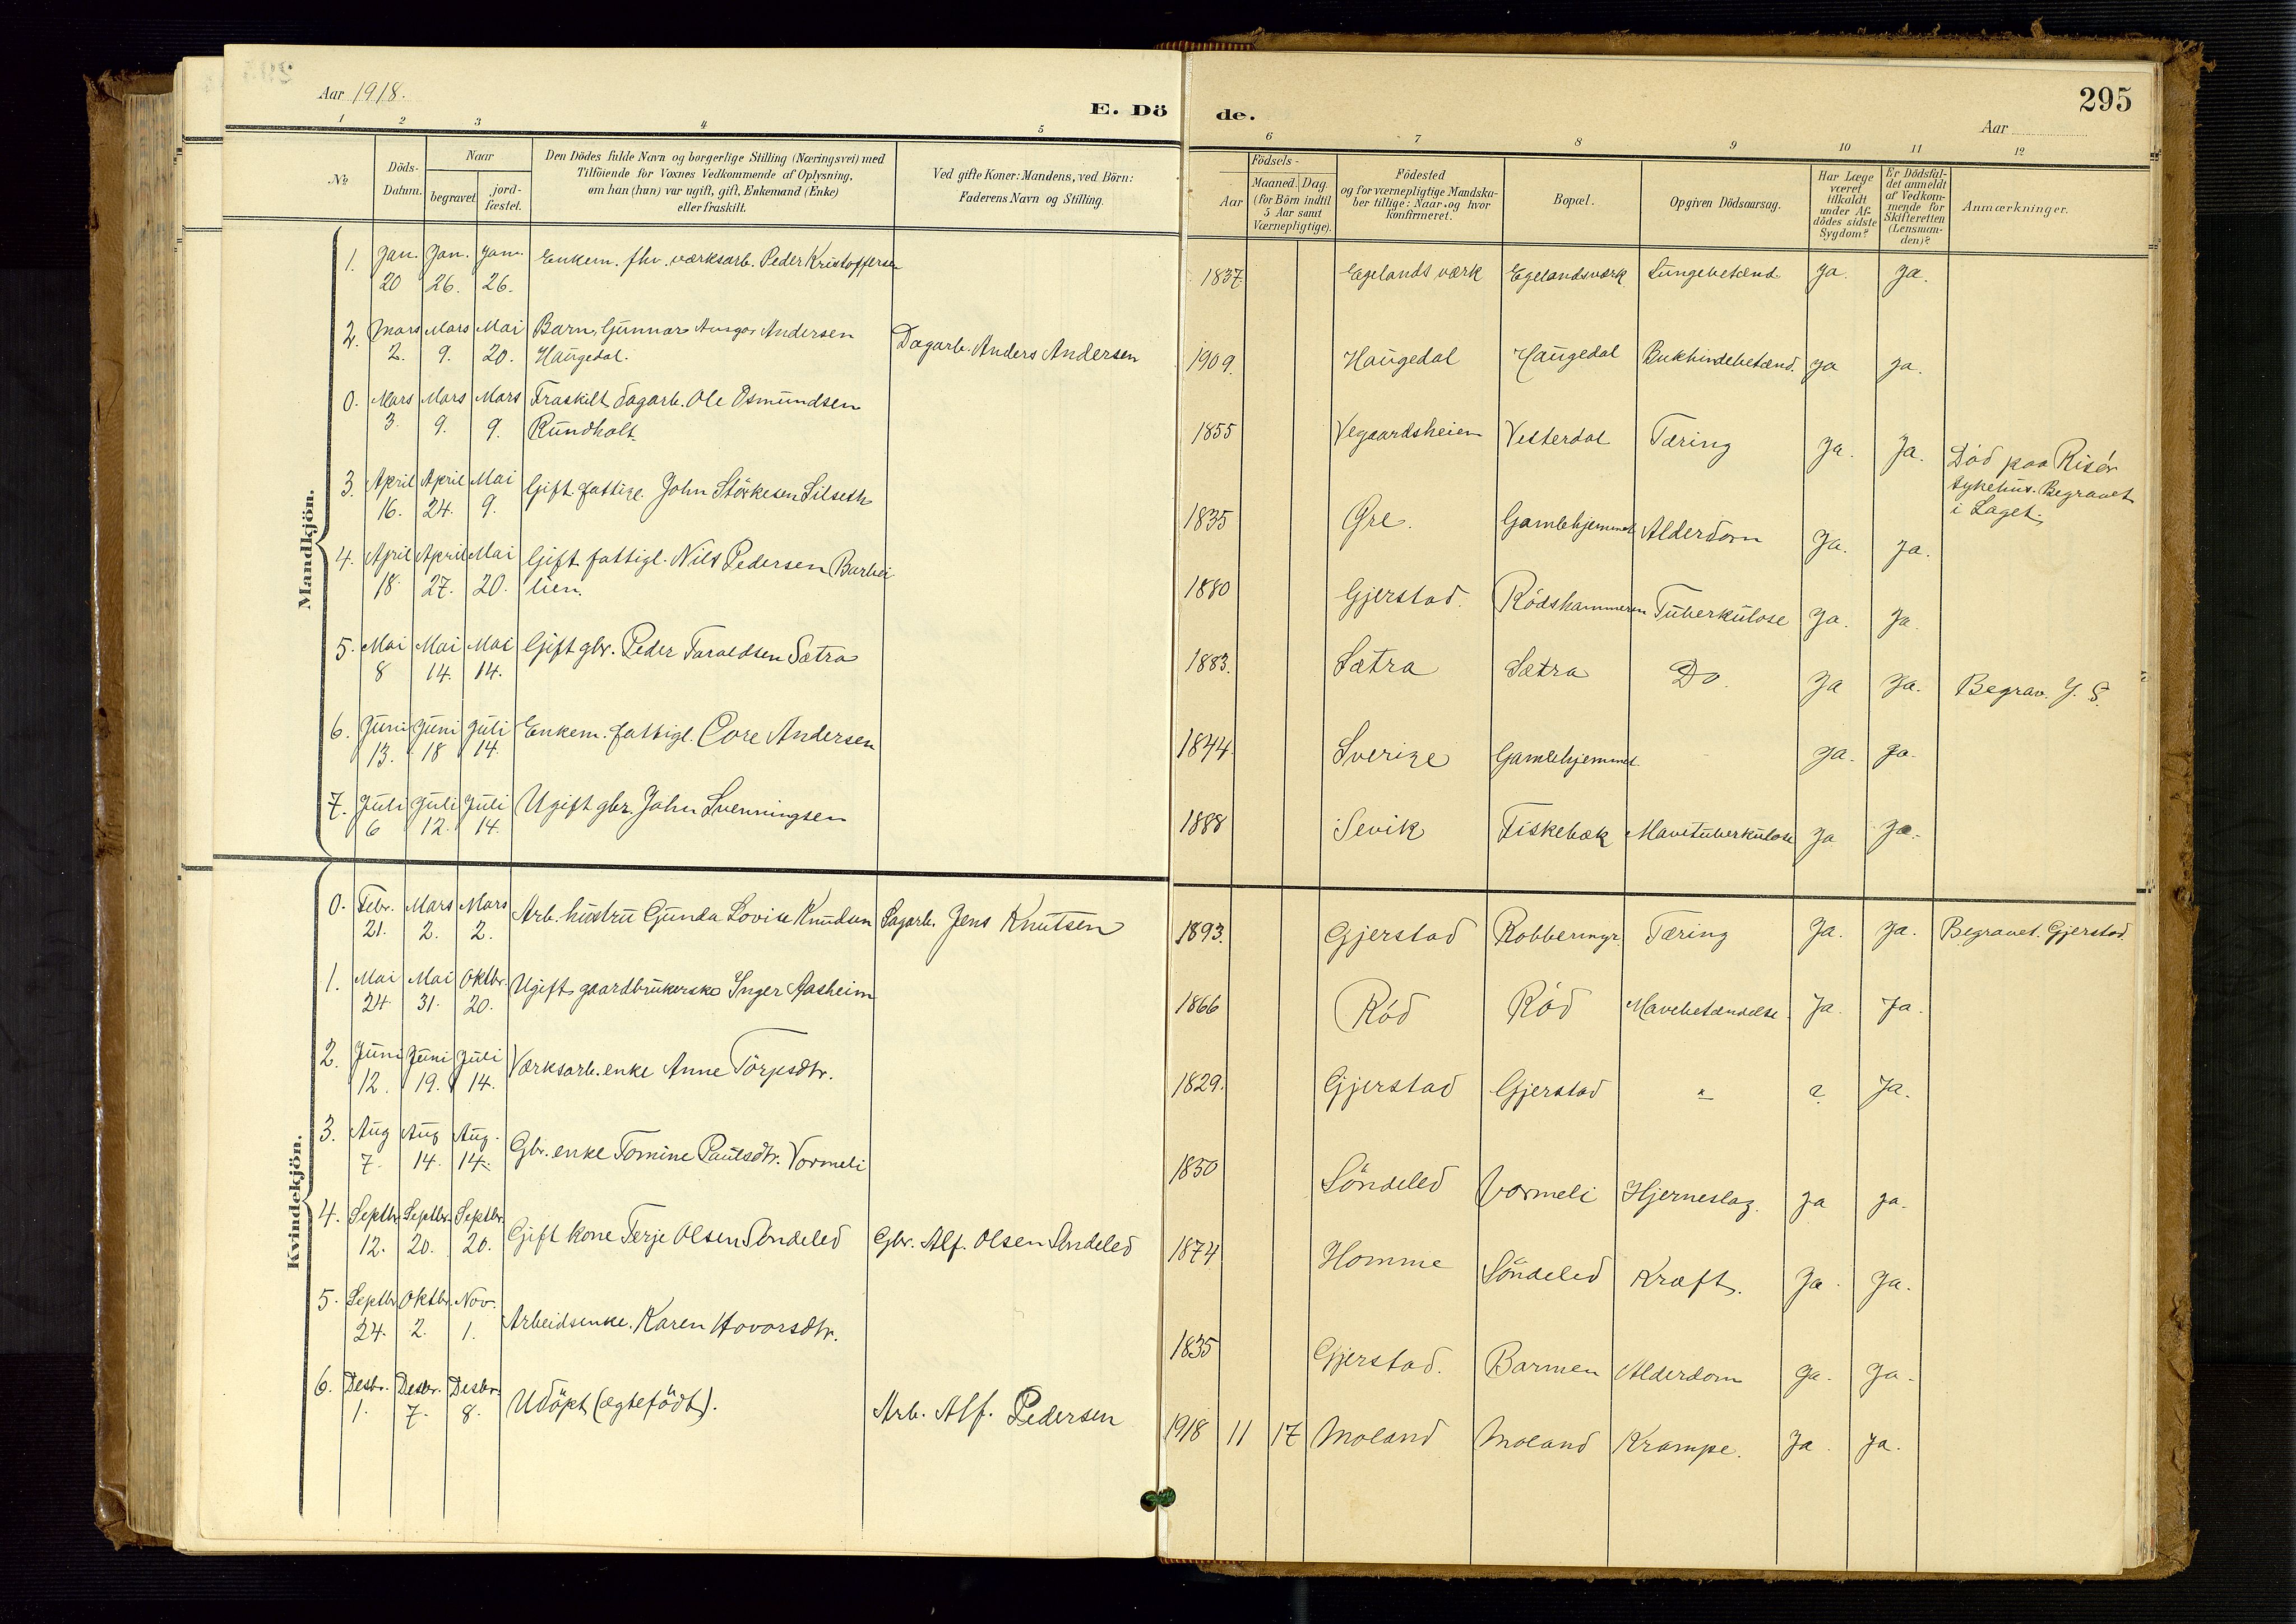 Aar 1918.
E. Döde.
295
Aar
1 2 3 4 5 6 7 8 9 10 11 12
No
Döds-Datum.
Naar
begravet
jord-fæstet.
Den Dödes fulde Navn og borgerlige Stilling (Næringsvei) med
Tilföiende for Voxnes Vedkommende af Oplysning,
om han (hun) var ugift, gift, Enkemand (Enke)
eller fraskilt.
Ved gifte Koner: Mandens, ved Börn:
Faderens Navn og Stilling.
Födsels-
Aar
Maaned. Dag.
(for Börn indtil
5 Aar samt
Værnepligtige).
Födested
og for værnepligtige Mandska-
ber tillige: Naar og hvor
konfirmeret.
Bopæl.
Opgiven Dödsaarsag.
Har Læge
været
tilkaldt
under Af-
dödes sidste
Sygdom?
Er Dödsfal-
det anmeldt
af Vedkom-
mende for
Skifteretten
(Lensman-
den)?
Anmærkninger.
Mandkjön.
1. Jan. 20 Jan. 26. Jan. 26. Enkem. fhv. værksarb. Peder Kristoffersen 1837. Egelands værk Egelandsværk Lungebetænd. Ja. Ja.
2. Mars 2. Mars 9. Mai 20. Barn, Gunnar Ansgar Andersen
Haugedal. Dagarb. Anders Andersen 1909. Haugedal Haugedal Bukhindebetænd. Ja Ja.
0. Mars 3. Mars 9. Mars 9. Fraskilt dagarb. Ole Osmundsen
Rundholt. 1855 Vegaardsheien Vesterdal Tæring Ja. Ja. Död paa Risör
sykehus. Begravet
i Laget.
3. April 16. April 24. Mai 9. Gift fattigl. John Störkesen Lilseth 1835 Gre. Gamlehjemmet Alderdom Ja. Ja.
4. April 18. April 27. Mai 20. Gift fattigl. Nils Pedersen Barlei
lien. 1880 Gjerstad. Rödshammeren Tuberkulose Ja. Ja.
5. Mai 8 Mai 14. Mai 14. Gift gbr. Peder Taraldsen Sætra 1883. Sætra Sætra Do. Ja Ja. Begrav. Y. S.
6. Juni 13. Juni 18 Juli 14. Enkem. fattigl. Core Andersen 1844. Sverige Gamlehjemmet. Ja. Ja.
7. Juli 6 Juli 12. Juli 14. Ugift gbr. John Svenningsen 1888 Sevik Fiskebæk Mavetuberkulose Ja Ja.
Kvindekjön.
0. Febr. 21. Mars 2. Mars 2. Arb. hustru Gunda Lovise Knudsen Sagarb. Jens Knutsen 1893. Gjerstad Robbermyr. Tæring Ja. Ja. Begravet. Gjerstad.
1. Mai 24 Mai 31. Oktbr. 20. Ugift gaardbrukerske Inger Aasheim 1866 Röd Röd Mavebetændelse. Ja. Ja.
2. Juni 12. Juni 19. Juli 14. Værksarb. enke Anne Törjesdtr. 1829. Gjerstad Gjerstad " ? Ja.
3. Aug 7. Aug 14. Aug. 14. Gbr. enke Tomine Paulsdtr. Vormeli 1850 Söndeled Vormeli Hjerneslag. Ja Ja.
4. Septbr. 12. Septbr. 20. Septbr. 20. Gift kone Terje Olsen Söndeled Gbr. Alf. Olsen Söndeled 1874 Homme Söndeled Kræft. Ja. Ja.
5. Septbr. 24. Oktbr. 2. Nov. 1. Arbeidsenke. Karen Hovorsdtr. 1835 Gjerstad. Barmen Alderdom Ja. Ja.
6. Desbr. 1. Desbr. 7. Desbr. 8. Udöpt (ægtefödt). Arb. Alf. Pedersen 1918 11 17 Moland Moland Krampe. Ja. Ja.